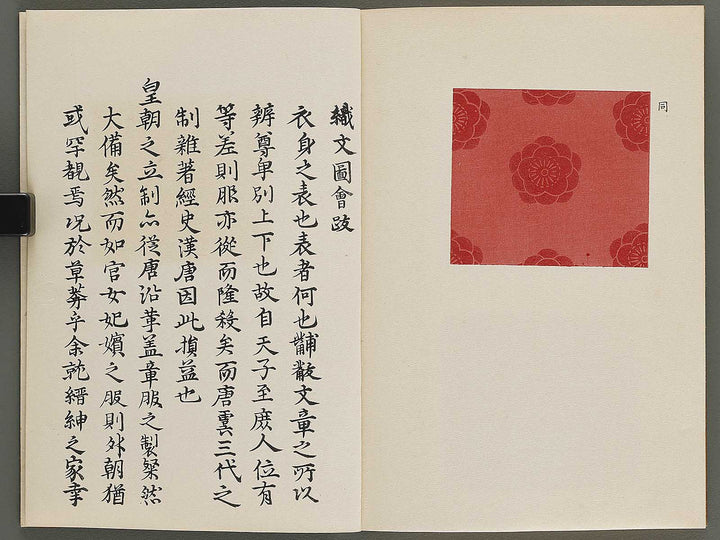 同
織文圖會跋
衣身之表也表者何也黼黻文章之所以
辨尊卑別上下也故自天子至庶人位有
等差則服亦從而隆殺矣而唐虞三代之
制雜著經史漢唐因此損益也
皇朝之立制亦從唐沿革蓋章服之製粲然
大備矣然而如官女妃嬪之服則外朝猶
或罕覩焉况於草莽乎余託縉紳之家幸